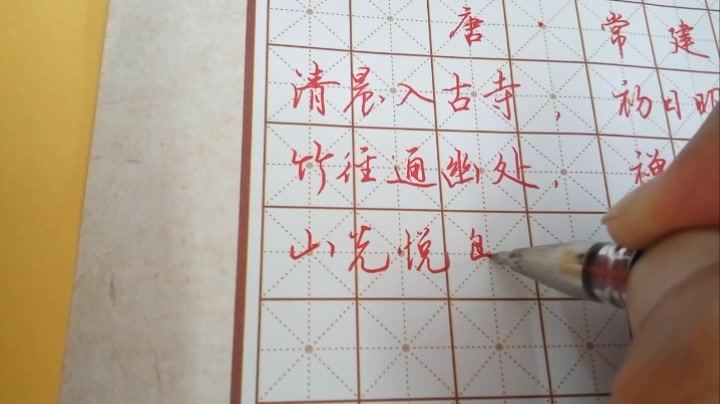 唐 常建
清晨入古寺，初日
竹径通幽处，禅
山光悦